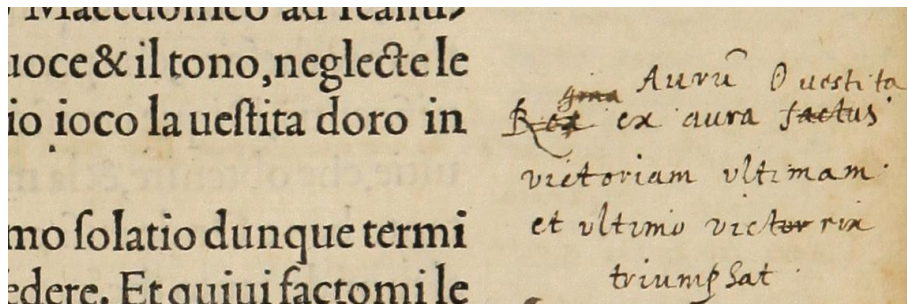 Macedonico ad
uoce & il tono, neglecte le
io ioco la ueſtita doro in
mo ſolatio dunque termi
edere. Et quiui factomi le
Aurũ Ouestita
gina
Rex ex aura factus
victoriam vltimam
et vltimo victor rix
triumphat